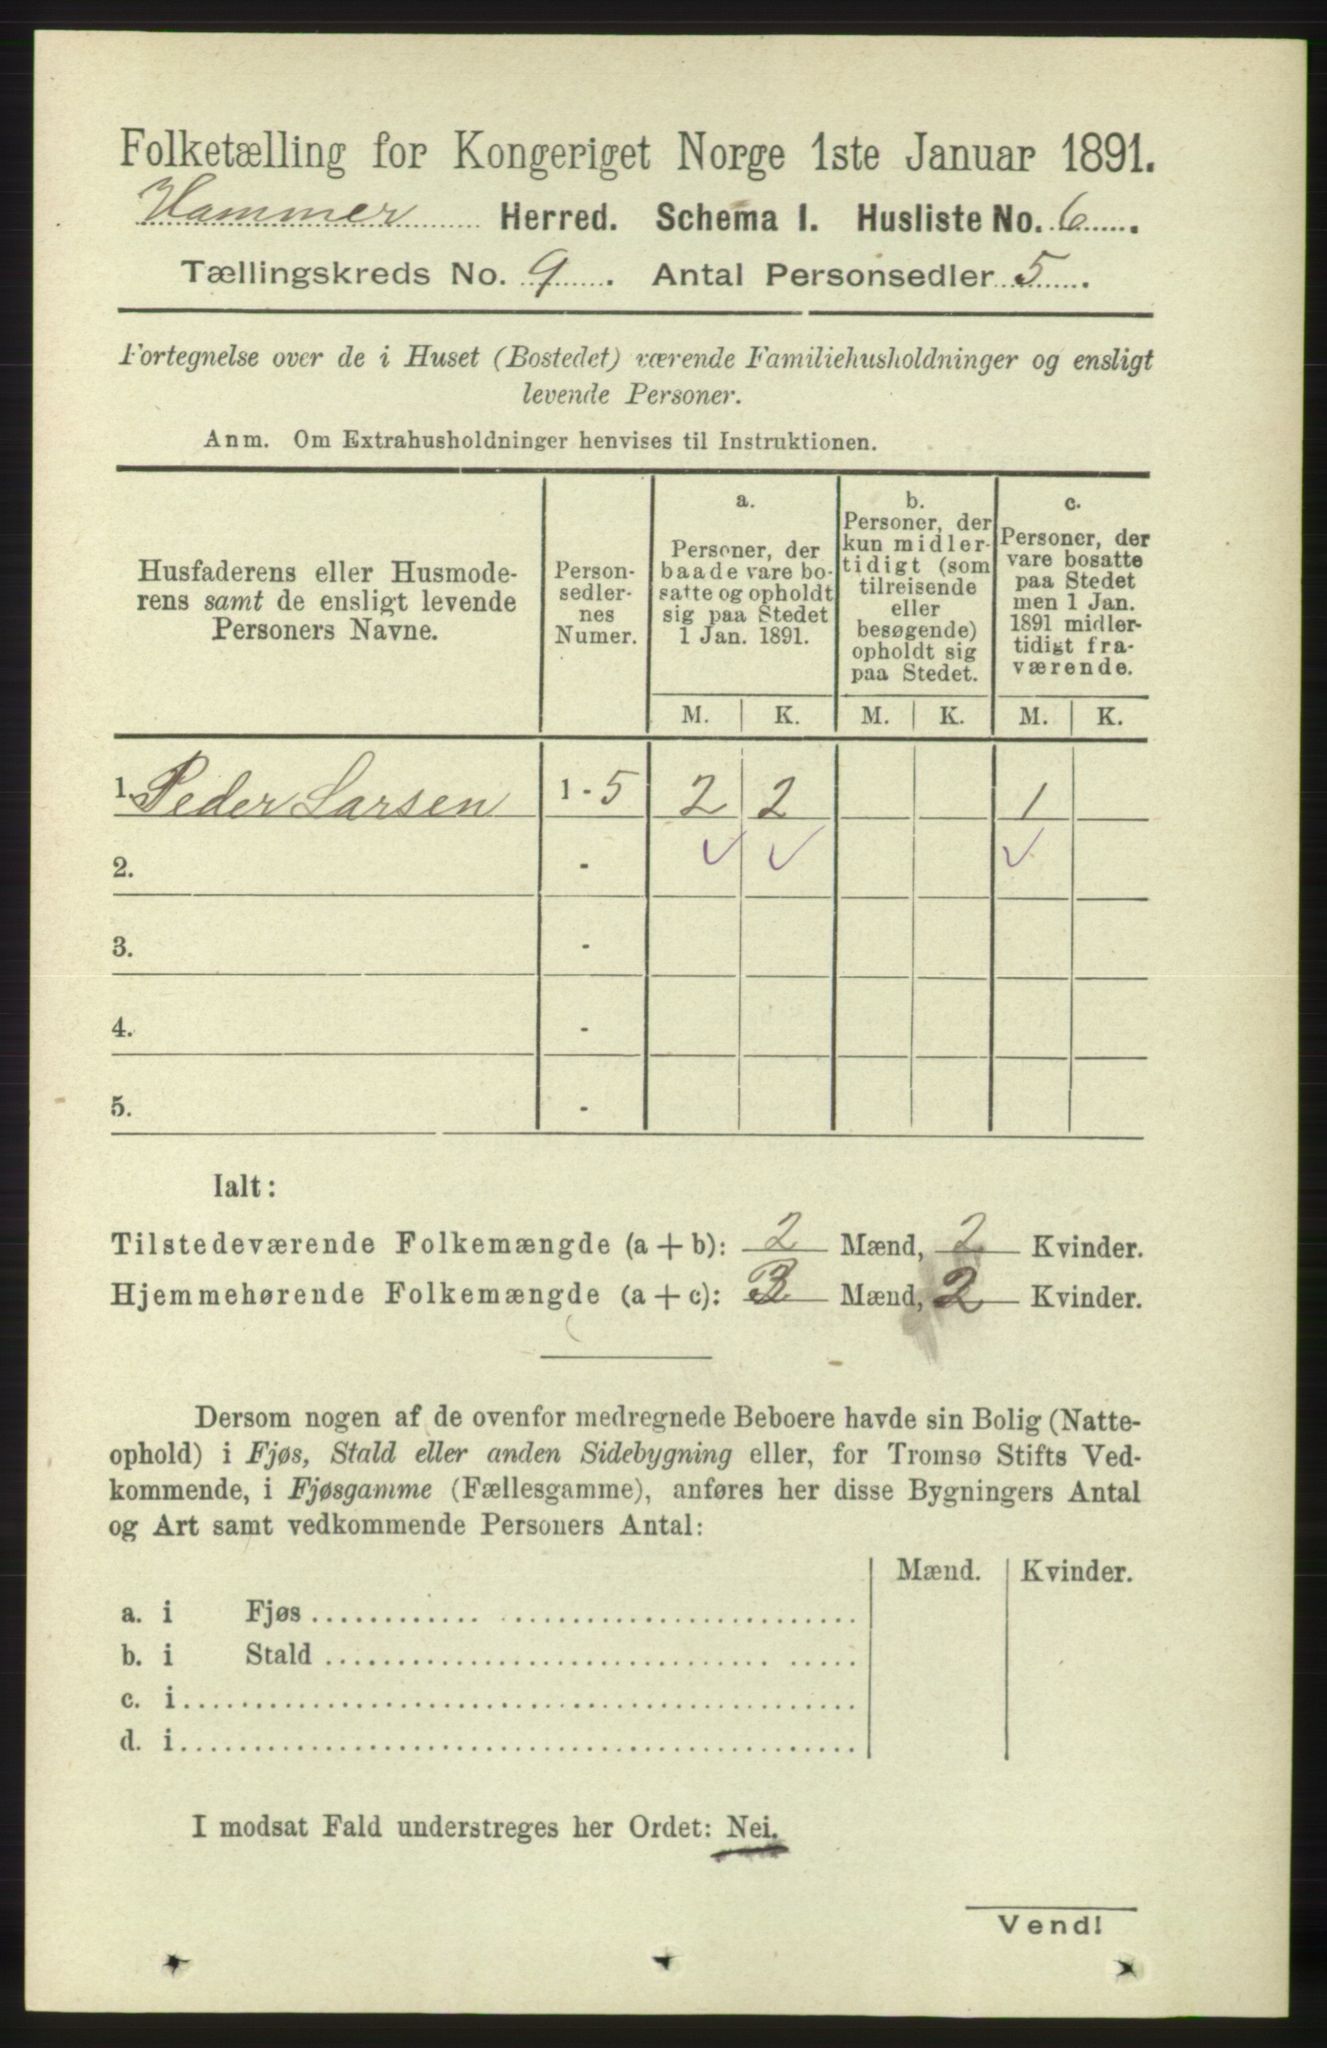 Folketælling for Kongeriget Norge 1ste Januar 1891.
Hammer Herred. Schema I. Husliste No. 6.
Tællingskreds No. 9. Antal Personsedler 5.
Fortegnelse over de i Huset (Bostedet) værende Familiehusholdninger og ensligt
levende Personer.
Anm. Om Extrahusholdninger henvises til Instruktionen.
Husfaderens eller Husmode-
rens samt de ensligt levende
Personers Navne.
Person-
sedler-
nes
Numer.
a.
Personer, der
baade vare bo-
satte og opholdt
sig paa Stedet
1 Jan. 1891.
b.
Personer, der
kun midler-
tidigt (som
tilreisende
eller
besøgende)
opholdt sig
paa Stedet.
c.
Personer, der
vare bosatte
paa Stedet
men 1 Jan.
1891 midler-
tidigt fra-
værende.
M. K. M. K. M. K.
1. Peder Larsen 1 - 5 2 2 1
2. - ✓ ✓ ✓
3. -
4. -
5. -
Ialt:
Tilstedeværende Folkemængde (a + b): 2 Mænd, 2 Kvinder.
Hjemmehørende Folkemængde (a + c): 3 Mænd, 2 Kvinder.
Dersom nogen af de ovenfor medregnede Beboere havde sin Bolig (Natte-
ophold) i Fjøs, Stald eller anden Sidebygning eller, for Tromsø Stifts Ved-
kommende, i Fjøsgamme (Fællesgamme), anføres her disse Bygningers Antal
og Art samt vedkommende Personers Antal:
Mænd. Kvinder.
a. i Fjøs
b. i Stald
c. i
d. i
I modsat Fald understreges her Ordet: Nei.
Vend!